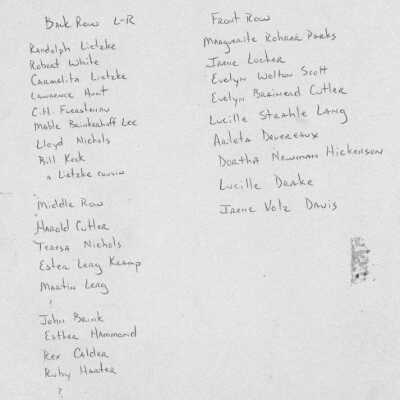 Back Row L-R
Randolph Lietzke
Robert White
Carmelita Lietzke
Lawrence Hunt
C.H. Fuerstenau
Mable Brinkerhoff Lee
Lloyd Nichols
Bill Keck
a Lietzke cousin
?
Middle Row
Harold Cutler
Teresa Nichols
Ester Leng Kramp
Martin Leng
?
John Brink
Esther Hammond
Rex Calder
Ruby Harter
?
Front Row
Marguerite Rohrer Parks
Irene Locher
Evelyn Welton Scott
Evelyn Brainerd Cutler
Lucille Strahle Lang
Arleta Devereaux
Dortha Newman Hickerson
Lucille Drake
Irene Votz Davis